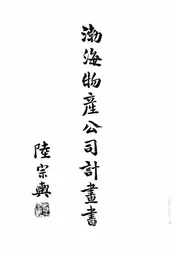 渤海物產公司計畫書
陸宗輿